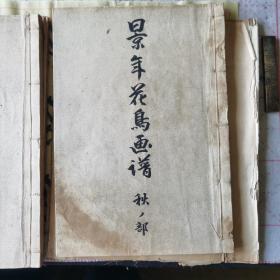 景年花鳥画譜
秋ノ部